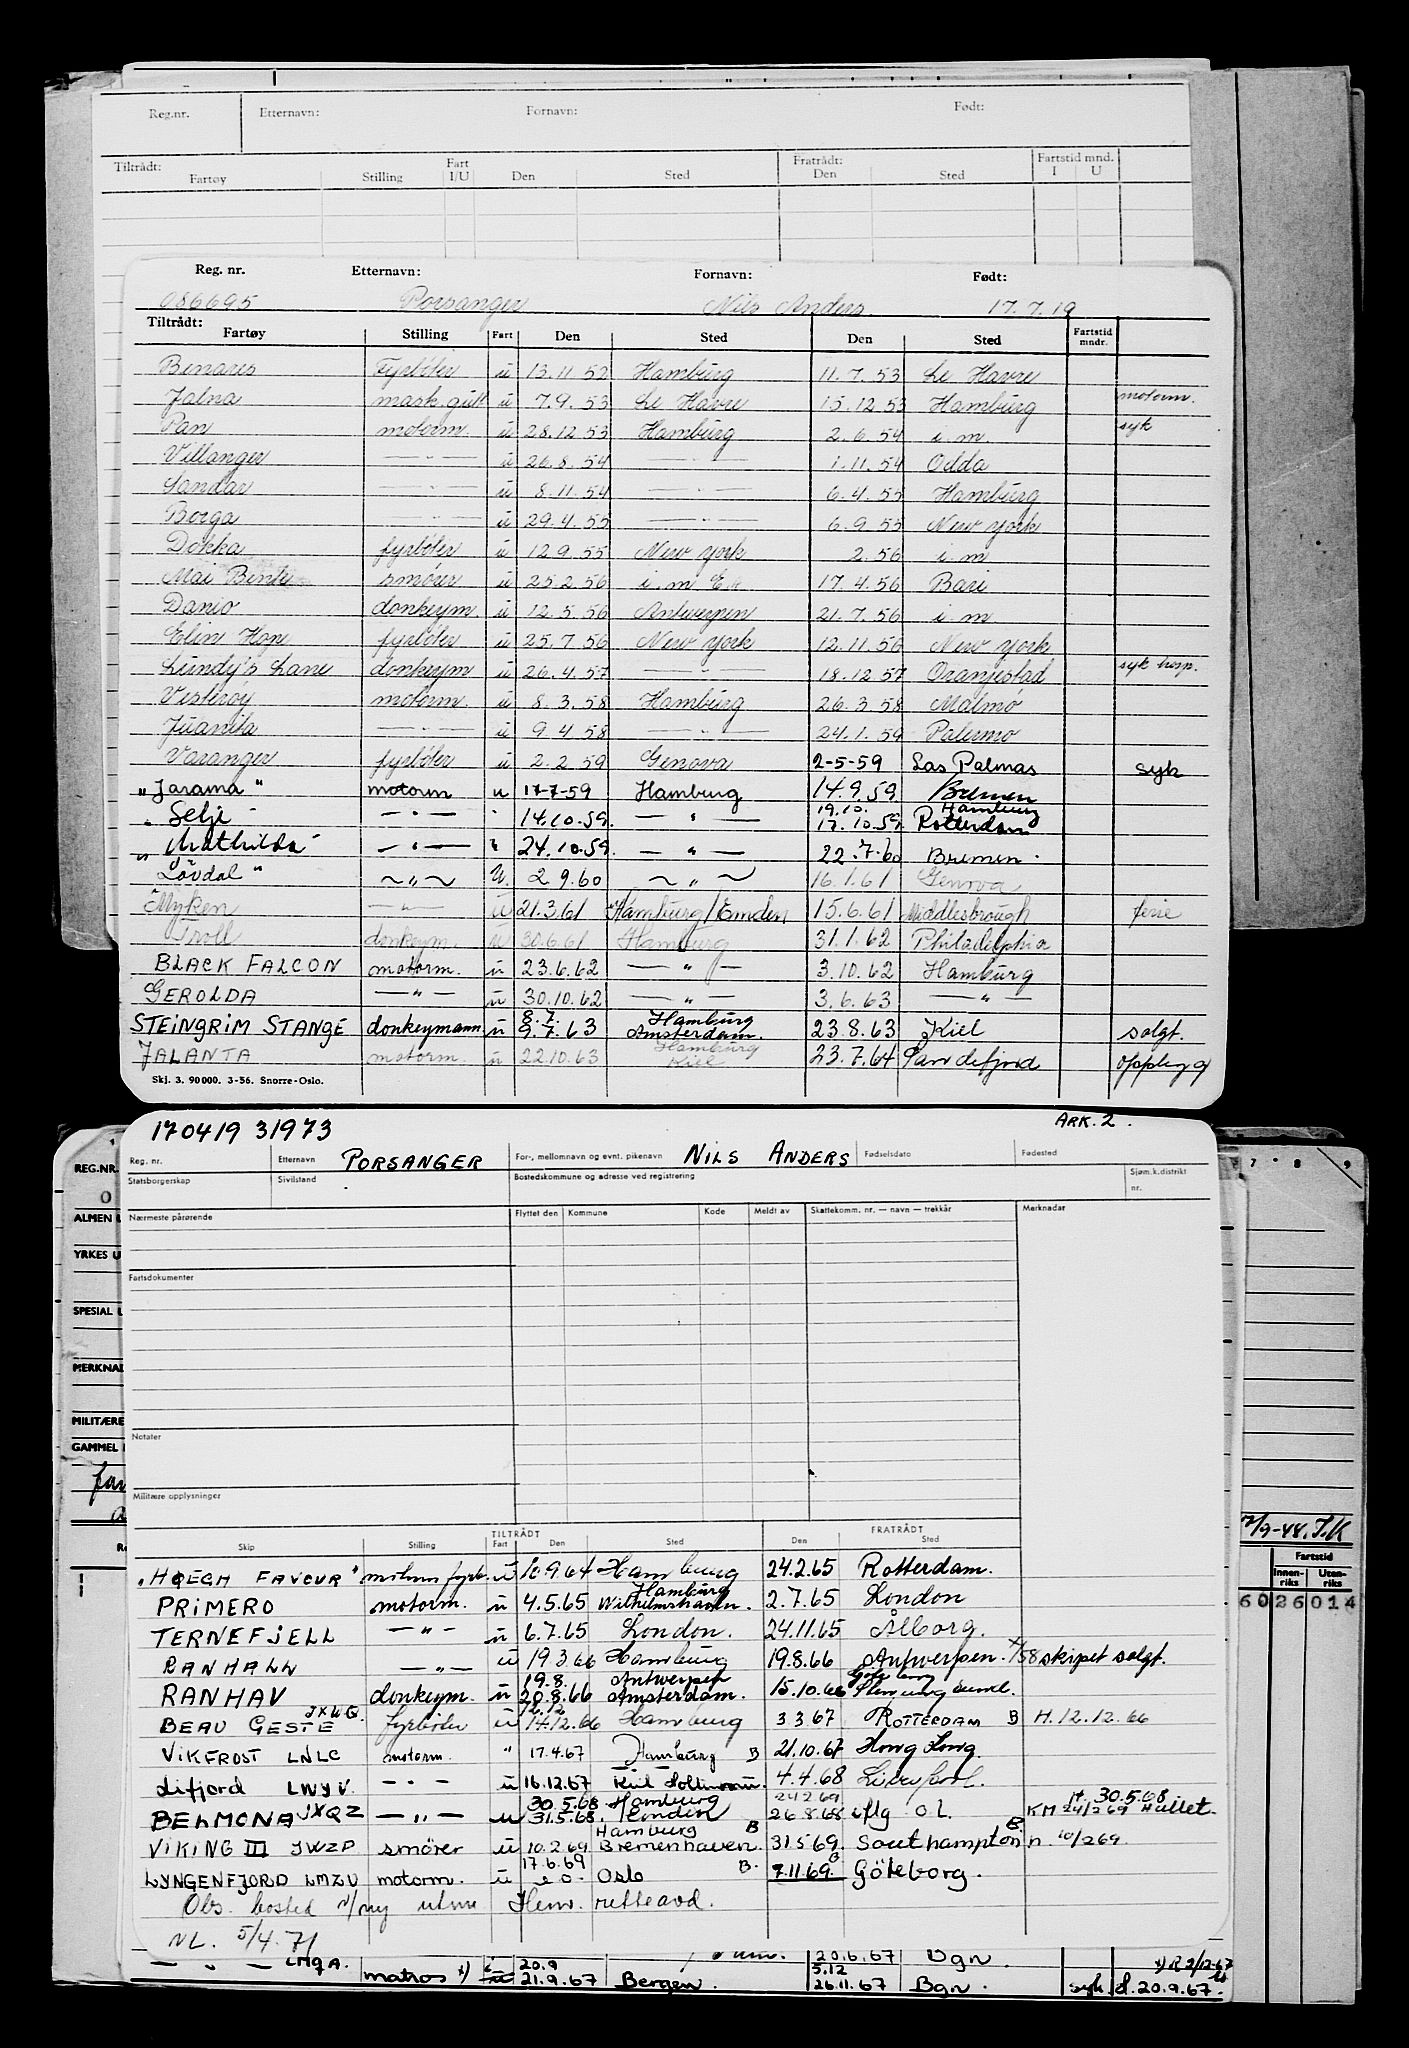 Reg.nr. Etternavn: Fornavn: Født:
Tiltrådt: Fart Fratrådt: Fartstid mnd.
Fartøy Stilling I/U Den Sted Den Sted I U
Reg. nr. Etternavn: Fornavn: Født:
086695 Porsanger Nils Anders 17.7.19
Tiltrådt: Fartøy Stilling Fart Den Sted Den Sted Fartstid mndr.
Benares Fyrbøter u 13.11.52 Hamburg 11.7.53 Le Havre
Jalna mask.gutt u 7.9.53 Le Havre 15.12.53 Hamburg motorm.
Pan motorm. u 28.12.53 Hamburg 2.6.54 i.m. syk
Villanger — " — u 26.8.54 — " — 1.11.54 Odda
Sandar — " — u 8.11.54 — " — 6.4.55 Hamburg
Borga — " — u 29.4.55 — " — 6.9.55 New York
Dokka fyrbøter u 12.9.55 New York 2.56 i.m
Mai Bente smører u 25.2.56 i.m 17.4.56 Bari
Danio donkeym. u 12.5.56 Antwerpen 21.7.56 i.m
Elin Hope fyrbøter u 25.7.56 New York 12.11.56 New York
Lundy's Lane donkeym u 26.4.57 — " — 18.12.57 Oranjestad syk hosp.
Vesterøy motorm. u 8.3.58 Hamburg 26.3.58 Malmö
Juanita — " — u 9.4.58 — " — 24.1.59 Palermo
Varanger fyrbøter u 2.2.59 Genova 2-5-59 Las Palmas syk
"Jarama" motorm u 17-7-59 Hamburg 14.9.59 Bremen
19.10. Hamburg
"Selje" — " — " 14.10.59. — " — 17.10.59 Rotterdam
"Mathilda" — " — " 24.10.59. — " — 22.7.60 Bremen.
"Lövdal" — " — U. 2.9.60 — " — 16.1.61 Genova
Myken — " — u 21.3.61 Hamburg/Emden 15.6.61 Middlesbrough ferie
Troll donkeym. u 30.6.61 Hamburg 31.1.62 Philadelphia
BLACK FALCON motorm. u 23.6.62 — " — 3.10.62 Hamburg
GEROLDA — " — u 30.10.62 — " — 3.6.63 — " —
8.7. Hamburg
STEINGRIM STANGE donkeymann u 9.7.63 Amsterdam. 23.8.63 Kiel solgt.
Hamburg
JALANTA motorm. u 22.10.63 Kiel 23.7.64 Sandefjord opplegg
Skj. 3. 90000. 3-56. Snorre-Oslo.
170419 31973 ARK.2.
Reg. nr. Etternavn PORSANGER For-, mellomnavn og evnt. pikenavn NILS ANDERS Fødselsdato Fødested
Statsborgerskap Sivilstand Bostedskommune og adresse ved registrering Sjøm.k.distrikt nr.
Nærmeste pårørende Flyttet den Kommune Kode Meldt av Skattekomm. nr. — navn — trekkår Merknadar
Fartsdokumenter
Notater
Militære opplysninger
TILTRÅDT FRATRÅDT
Skip Stilling Fart Den Sted Den Sted
"HØEGH FAVOUR" u 10.9.64 Hamburg 24.2.65 Rotterdam.
Hamburg
PRIMERO motorm. u 4.5.65 Wilhelmshaven. 2.7.65 London
TERNEFJELL — " — u 6.7.65 London. 24.11.65 Ålborg.
RANHALL — " — u 19.3.66 Hamburg 19.8.66 Antwerpen. skipet solgt.
19.8. Antwerpen
RANHAV donkeym. u 20.8.66 Amsterdam. 15.10.66
BEAU GESTE JXLQ. fyrbøter u 14.12.66 Hamburg 3.3.67 ROTTERDAM B H.12.12.66
VIKFROST LNLC motorm. " 17.4.67 Hamburg B 21.10.67 Hong Kong.
Lifjord LWYV. — " — u 16.12.67 Kiel Holtenau. 4.4.68 Liverpool.
30.5.68 Hamburg 24.2.69 H. 30.5.68
BELMONA JXQZ — " — u 31.5.68. London 26.8.68 O.L. KM 24/2 69
Hamburg B
VIKING III JWZP smører u 10.2.69 Bremenhaven. 31.5.69. Southampton B H. 10/2 69.
17.6.69
LYNGENFJORD LMZU motorm. u Oslo B. 7.11.69. B Göteborg.
Obs. bosted v/ny utmø Henv. retteavd.
NL. 5/4.71
REG.NR.
ALMEN
YRKES U
SPESIAL
MERKNAD
MILITÆRE
GAMMEL
7 8 9
Fartstid
Innenriks Utenriks
6026014
20.6.67 Bgn
— " — LMQA. 20.9 5.12
matros x) 21.9.67 Bergen. 26.11.67 Bgn. syk. d.20.9.67.